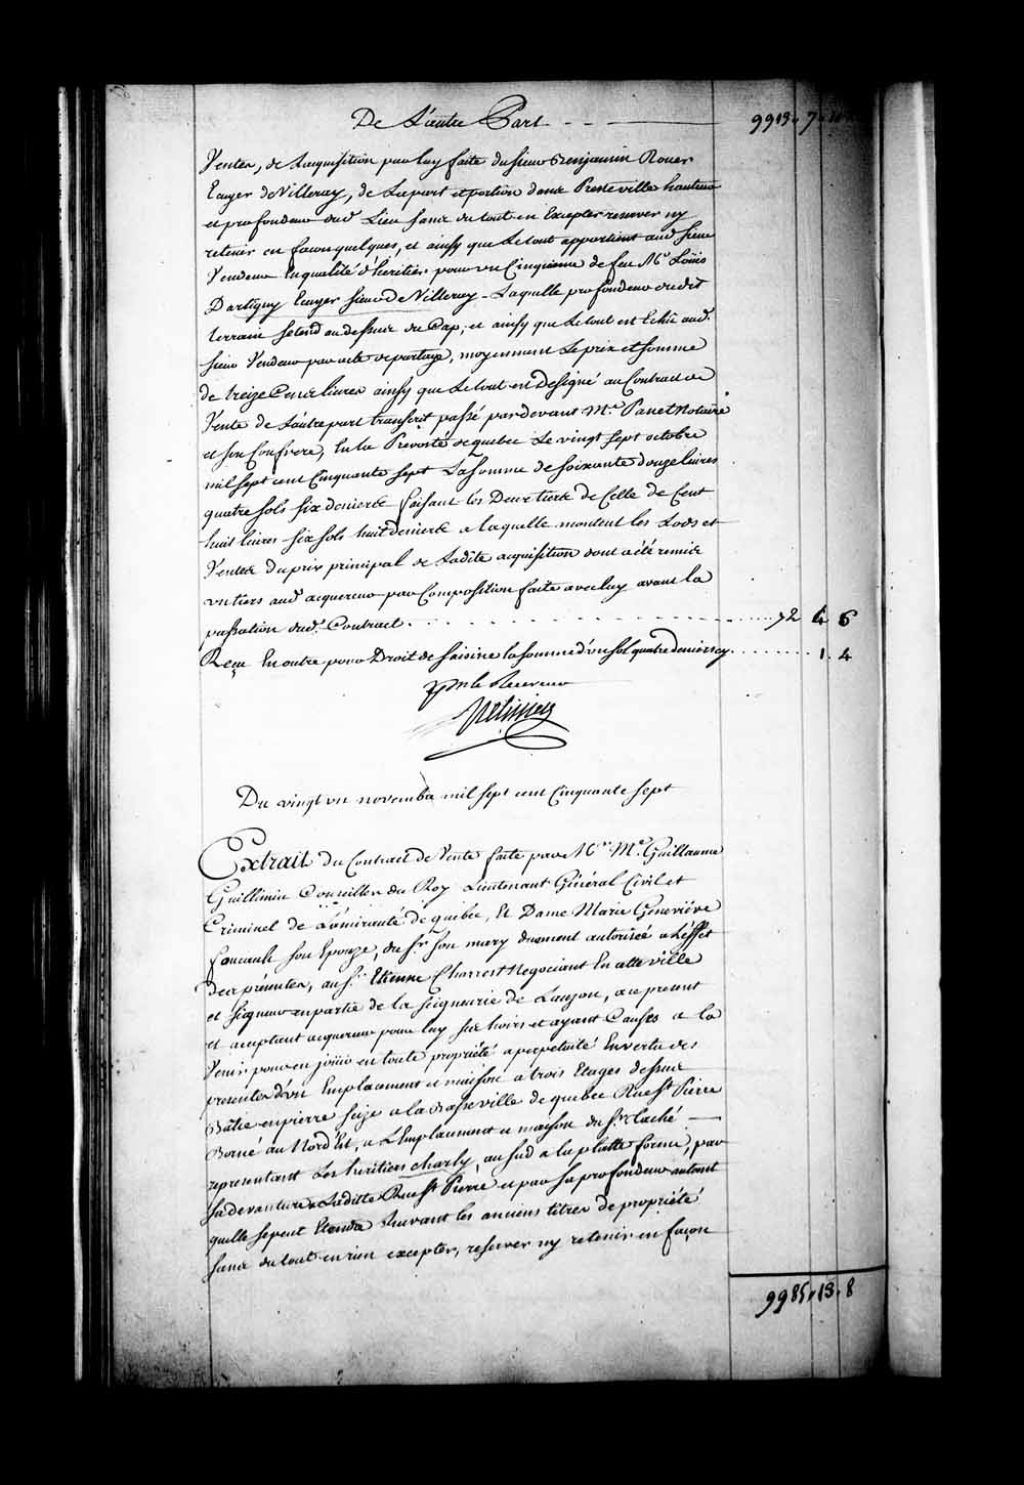 De L'autre Part - - - 9913. 7. 10
Ventes, de Lacquisition par luy faite du sieur Benjamin Rouer
Ecuyer de Villeray, de Sa part et portion dans Cette ville hauteur
et profondeur dud. Lieu sans du tout en Excepter reserver ny
retenir en facon quelques, et ainsy que Le tout appartient aud sieur
Vendeur En qualité d'heritier pour un Cinquieme de feu Mr Loüis
Dartigny Ecuyer sieur De Villeray - Laquelle profondeur dudit
terrain setend au dessus du Cap; et ainsy que Le tout est Echû aud.
sieur Vendeur par acte de partage, moyennant Le prix et somme
de treize Cens livres ainsy que Le tout est Designé au Contract de
Vente de L'autre part transcrit passé pardevant Me. Panet Notaire
et son Confrere, En la Prevosté de quebec Le vingt sept octobre
mil sept cent Cinquante sept La somme de soixante douze livres
quatre sols six deniers faisant les Deux tiers de Celle de Cent
huit livres six sols huit deniers a laquelle montent les Lods et
Ventes du prix principal de Ladite acquisition dont a été remis
un tiers aud acquereur par Composition faite avec luy avant la
passation dud. Contract. . . . . . . . . . . . 72 4 6
Reçu En outre pour Droit de saisine la somme d'un sol quatre deniers cy. . . . . . . 1. 4
le Receveur
Du vingt un novembre mil sept cent Cinquante sept
Extrait du Contract de Vente faite par Mr. Me. Guillaume
Guillimin Conseiller du Roy Lieutenant Général Civil et
Criminel de L'amirauté de quebec, Et Dame Marie Geneviéve
foucault son Epouze, du sr. son mary duement autorisée a L'effet
des presentes, au sr. Etienne Charrest Negociant En cette ville
et seigneur en partie de la seigneurie de Lauzon, a ce present
et acceptant acquereur pour luy ses hoirs et ayant Causes a la
Venir pour en joüir en toute propriété a perpetuité En vertu des
presentes d'un Emplacement et maison a trois Etages dessus
Bâtie en pierre seize a la Basse ville de quebec Rue St Pierre
Borné au Nord Est, a L'Emplacement et maison du Sr. Claché
representant Les heritiers charly, au sud a la platte forme, par
sa devanture a Laditte Rue St Pierre et par sa profondeur autant
quelle se peut Etendre Suivant les anciens titres de propriété
sans du tout en rien excepter, reserver ny retenir en façon
9985. 13. 8